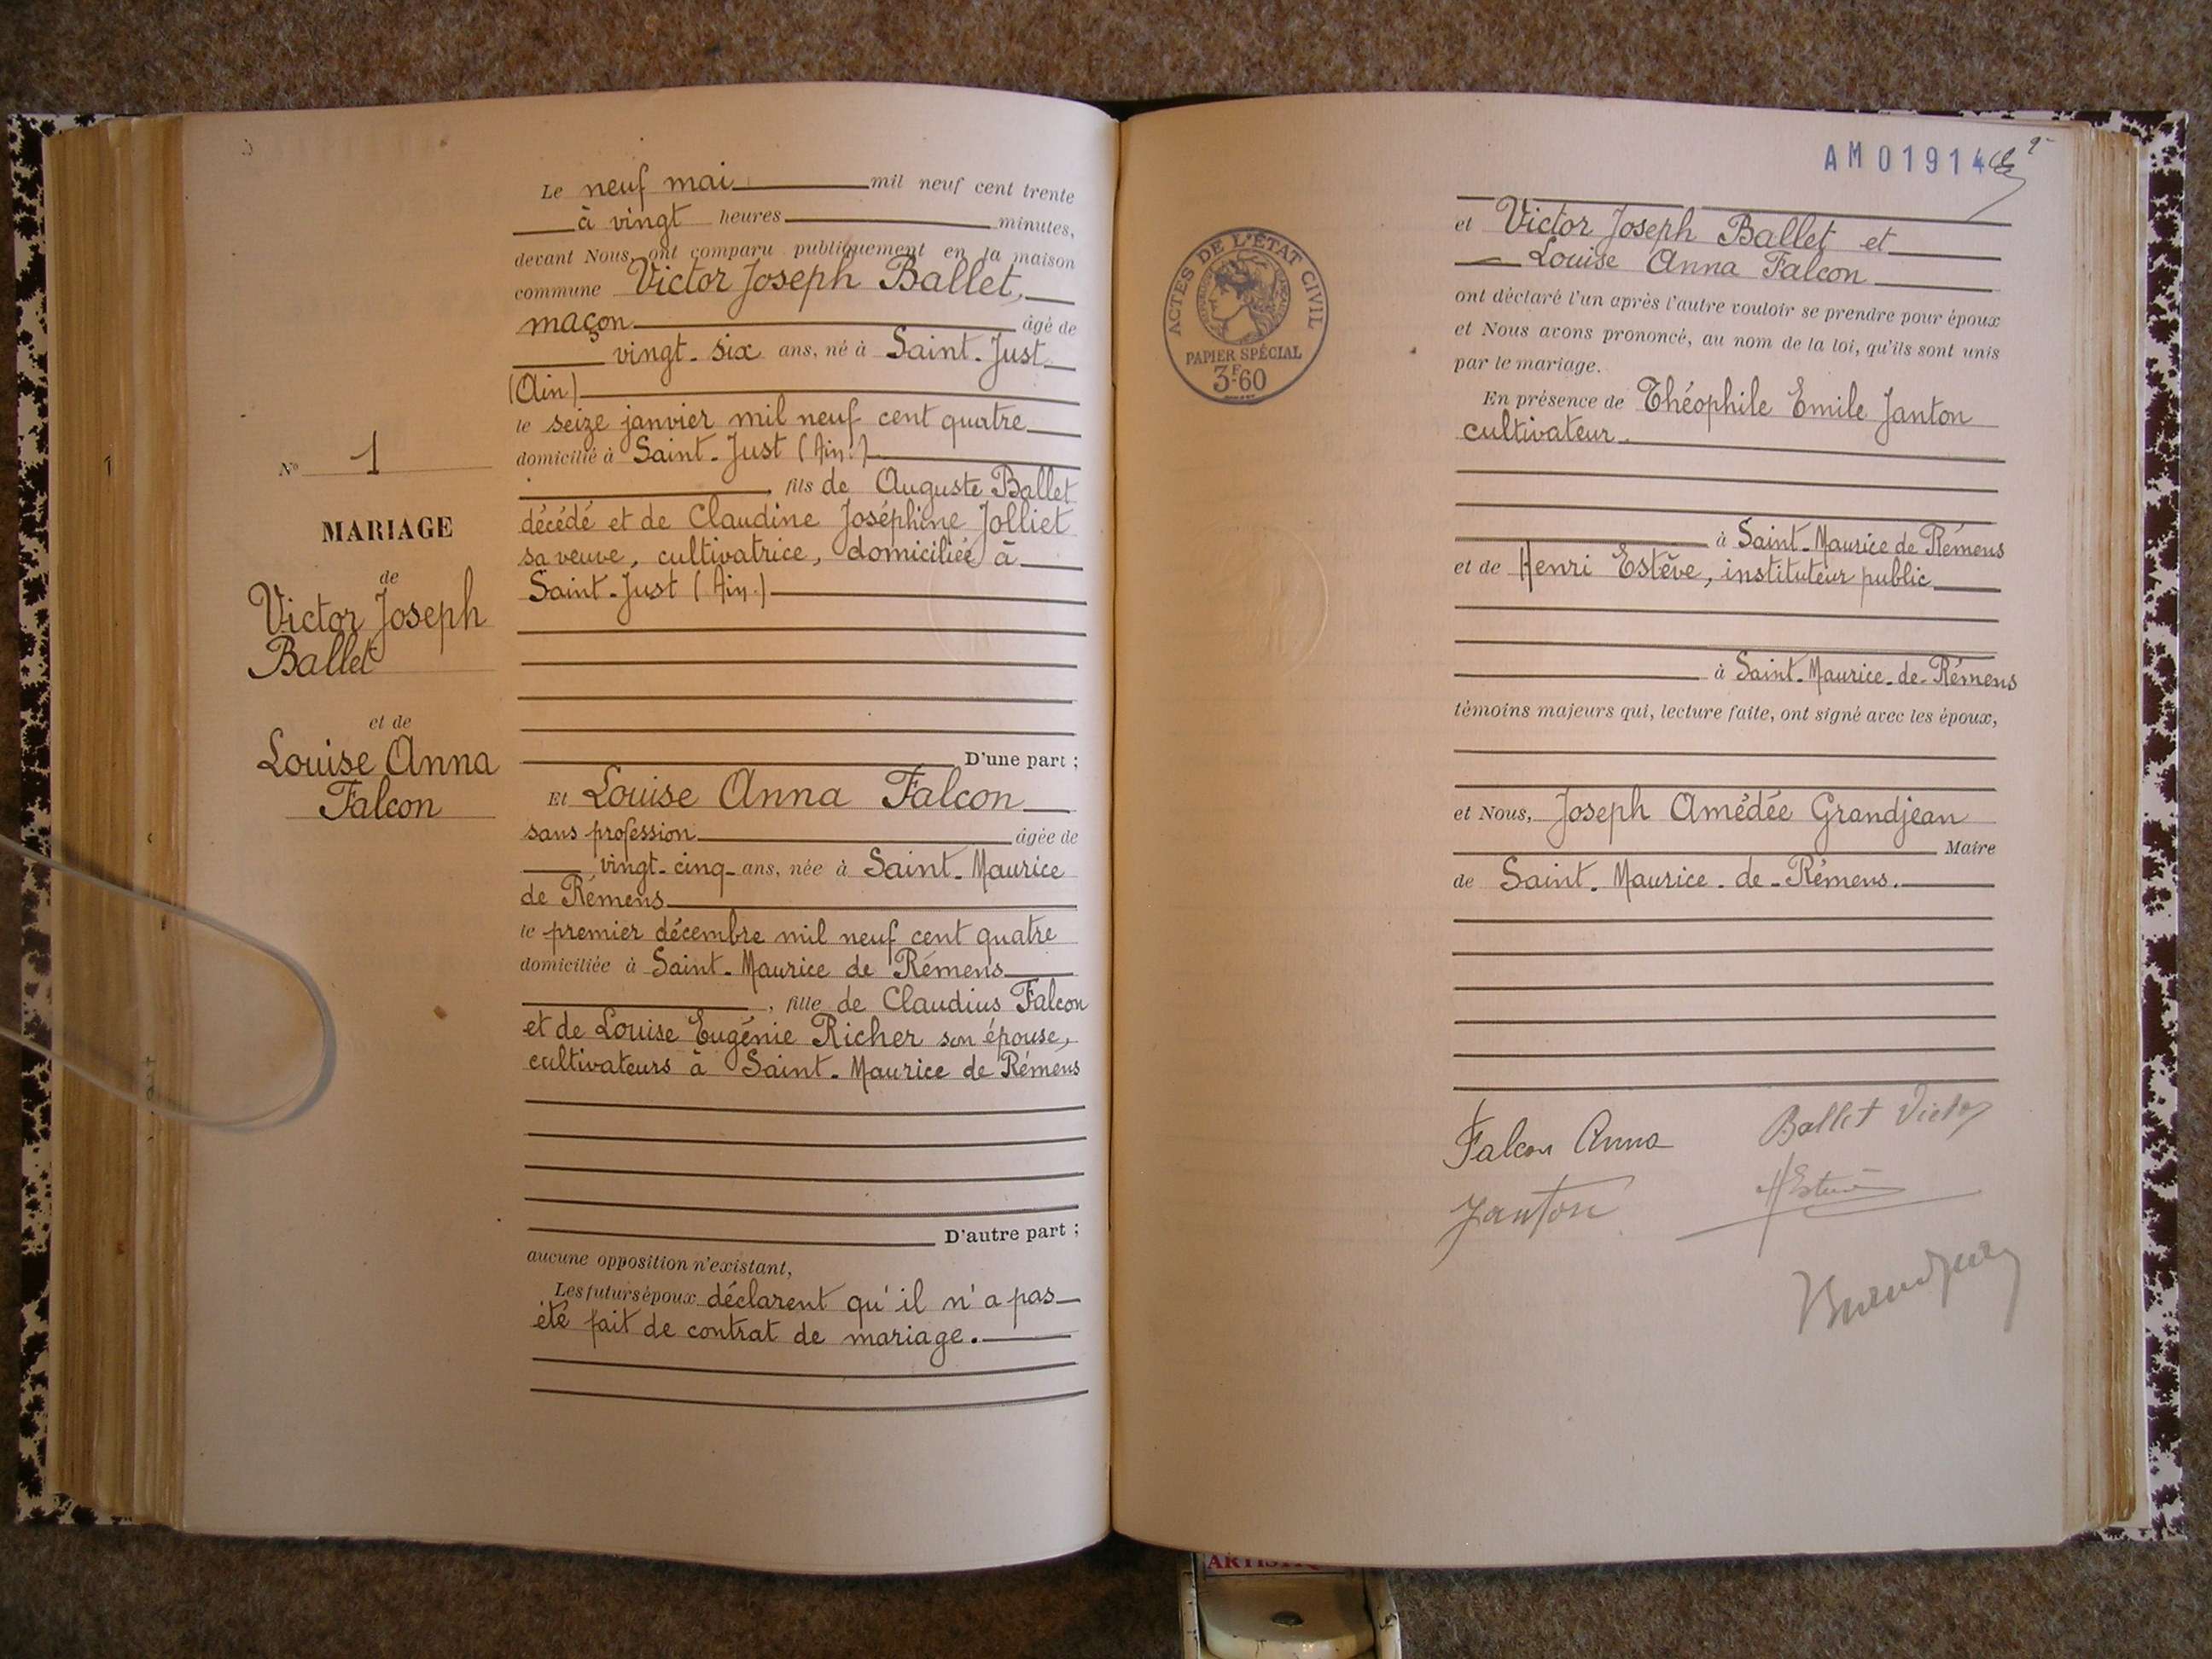 1
N° 1
MARIAGE
de
Victor Joseph
Ballet
et de
Louise Anna
Falcon
Le neuf mai mil neuf cent trente
à vingt heures minutes,
devant Nous, ont comparu publiquement en la maison
commune Victor Joseph Ballet,
maçon âgé de
vingt-six ans, né à Saint-Just
(Ain)
le seize janvier mil neuf cent quatre
domicilié à Saint-Just (Ain)
, fils de Auguste Ballet
décédé et de Claudine Joséphine Jolliet
sa veuve, cultivatrice, domiciliée à
Saint-Just (Ain)
D'une part ;
Et Louise Anna Falcon
sans profession âgée de
vingt-cinq ans, née à Saint-Maurice
de Rémens
le premier décembre mil neuf cent quatre
domiciliée à Saint-Maurice de Rémens
, fille de Claudius Falcon
et de Louise Eugénie Richer son épouse,
cultivateurs à Saint-Maurice de Rémens
D'autre part ;
aucune opposition n'existant,
Les futurs époux déclarent qu'il n'a pas
été fait de contrat de mariage.
AM01914
ACTES DE L'ÉTAT CIVIL
PAPIER SPÉCIAL
3F60
et Victor Joseph Ballet et
Louise Anna Falcon
ont déclaré l'un après l'autre vouloir se prendre pour époux
et Nous avons prononcé, au nom de la loi, qu'ils sont unis
par le mariage.
En présence de Théophile Emile Janton
cultivateur
à Saint-Maurice de Rémens
et de Henri Estève, instituteur public
à Saint-Maurice-de-Rémens
témoins majeurs qui, lecture faite, ont signé avec les époux,
et Nous, Joseph Amédée Grandjean
Maire
de Saint-Maurice-de-Rémens.
Falcon Anna Ballet Victor
Janton HEstève
Grandjean